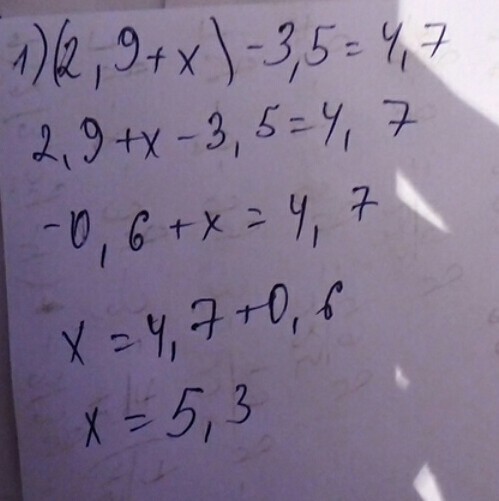 1) (2,9+x) -3,5=4,7
2,9+x-3,5=4,7
-0,6+x=4,7
x=4,7+0,6
x=5,3